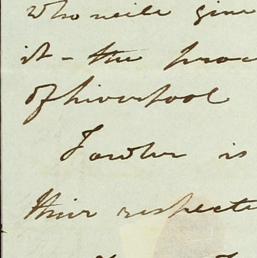 who will give
it - the proc
of Liverpool
Fowler is
their respecte